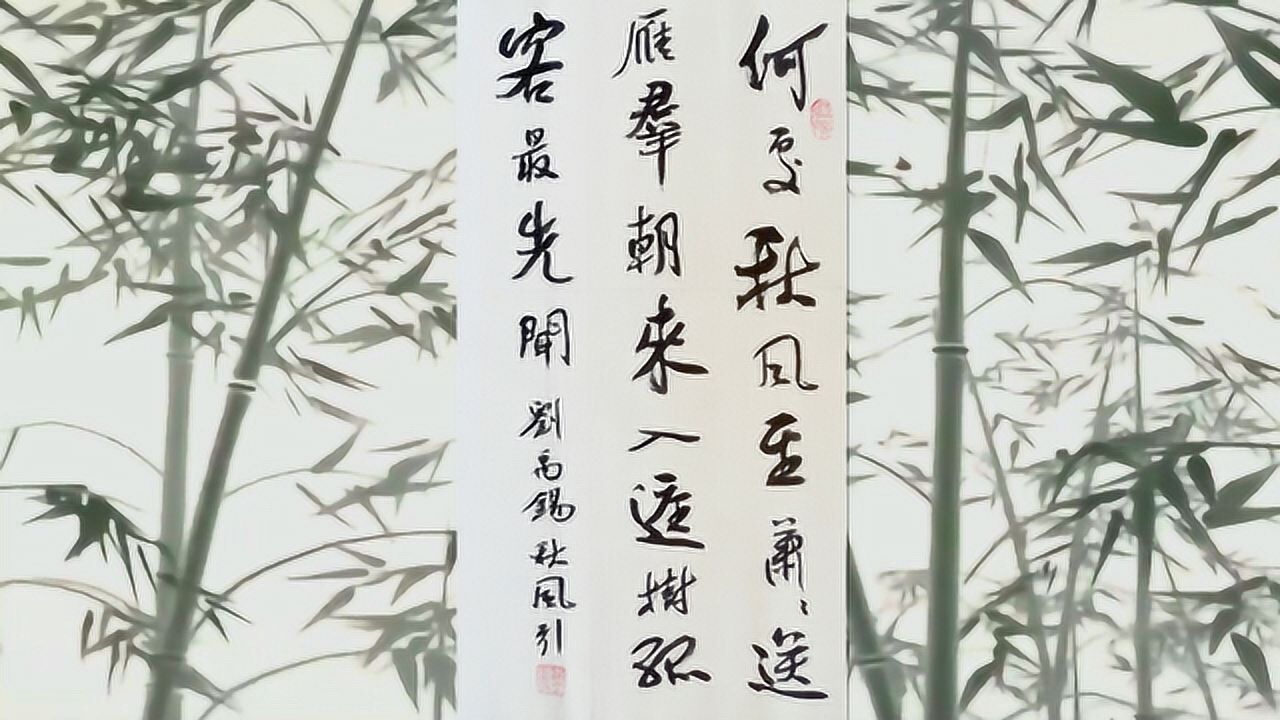 何處秋風至蕭〻送
雁羣朝來入庭樹孤
客最先聞 劉禹錫秋風引